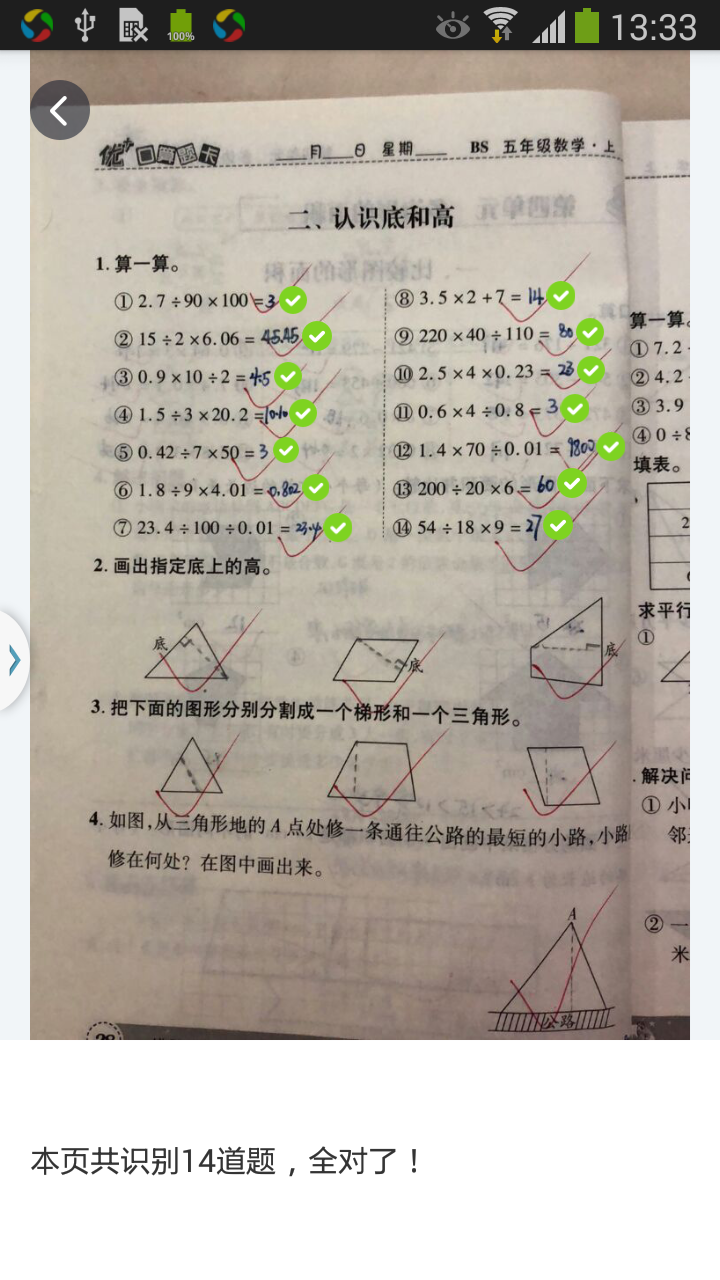 100%
13:33
优+口算题卡 ___月___日 星期___ BS 五年级数学·上
二、认识底和高
1. 算一算。
① 2.7÷90×100=3
② 15÷2×6.06=45.45
③ 0.9×10÷2=4.5
④ 1.5÷3×20.2=10.10
⑤ 0.42÷7×50=3
⑥ 1.8÷9×4.01=0.802
⑦ 23.4÷100÷0.01=23.4
⑧ 3.5×2+7=14
⑨ 220×40÷110=80
⑩ 2.5×4×0.23=23
⑪ 0.6×4÷0.8=3
⑫ 1.4×70÷0.01=9800
⑬ 200÷20×6=60
⑭ 54÷18×9=27
2. 画出指定底上的高。
底
底
底
3. 把下面的图形分别分割成一个梯形和一个三角形。
4. 如图,从三角形地的A点处修一条通往公路的最短的小路,小路
修在何处?在图中画出来。
A
公路
算一算。
① 7.2
② 4.2
③ 3.9
④ 0÷8
填表。
2
求平行
①
.解决问
① 小
邻
② 一
米
本页共识别14道题，全对了！